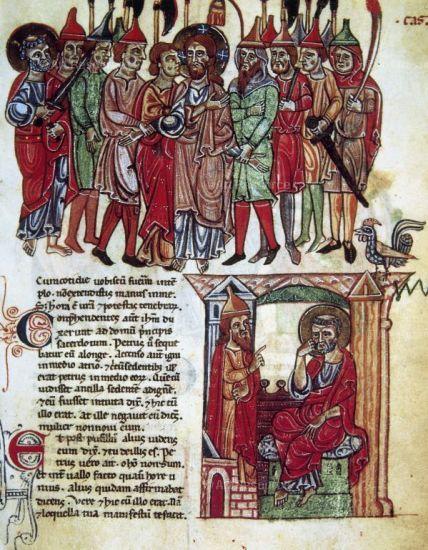 cas
Cum cotidie vobiscu fueri inte
plo. no extendistis manus i me
S; hora e ura & potestas tenebrar
onprehendentes aut ihm du
xerunt ad domu principis
sacerdotum. Petrus u sequ
batur eu alonge. Accenso aut igni
in medio atrio. & circu sedentibus ill
erat petrus in medio eor. Que cu
vidisset ancilla sedente ad igne.
& eu fuisset intuita dix. & hic cu
illo erat. At ille negavit eu dic
mulier non novi eum.
Et post pusillu alius videns
eum dix. & tu de illis es. Pe
trus vero ait. o ho non sum.
et intvallo facto quasi hore u
nius. alius quidam affirmabat
dicens. Vere & hic cu illo erat.
& loquella tua manifestu te facit.